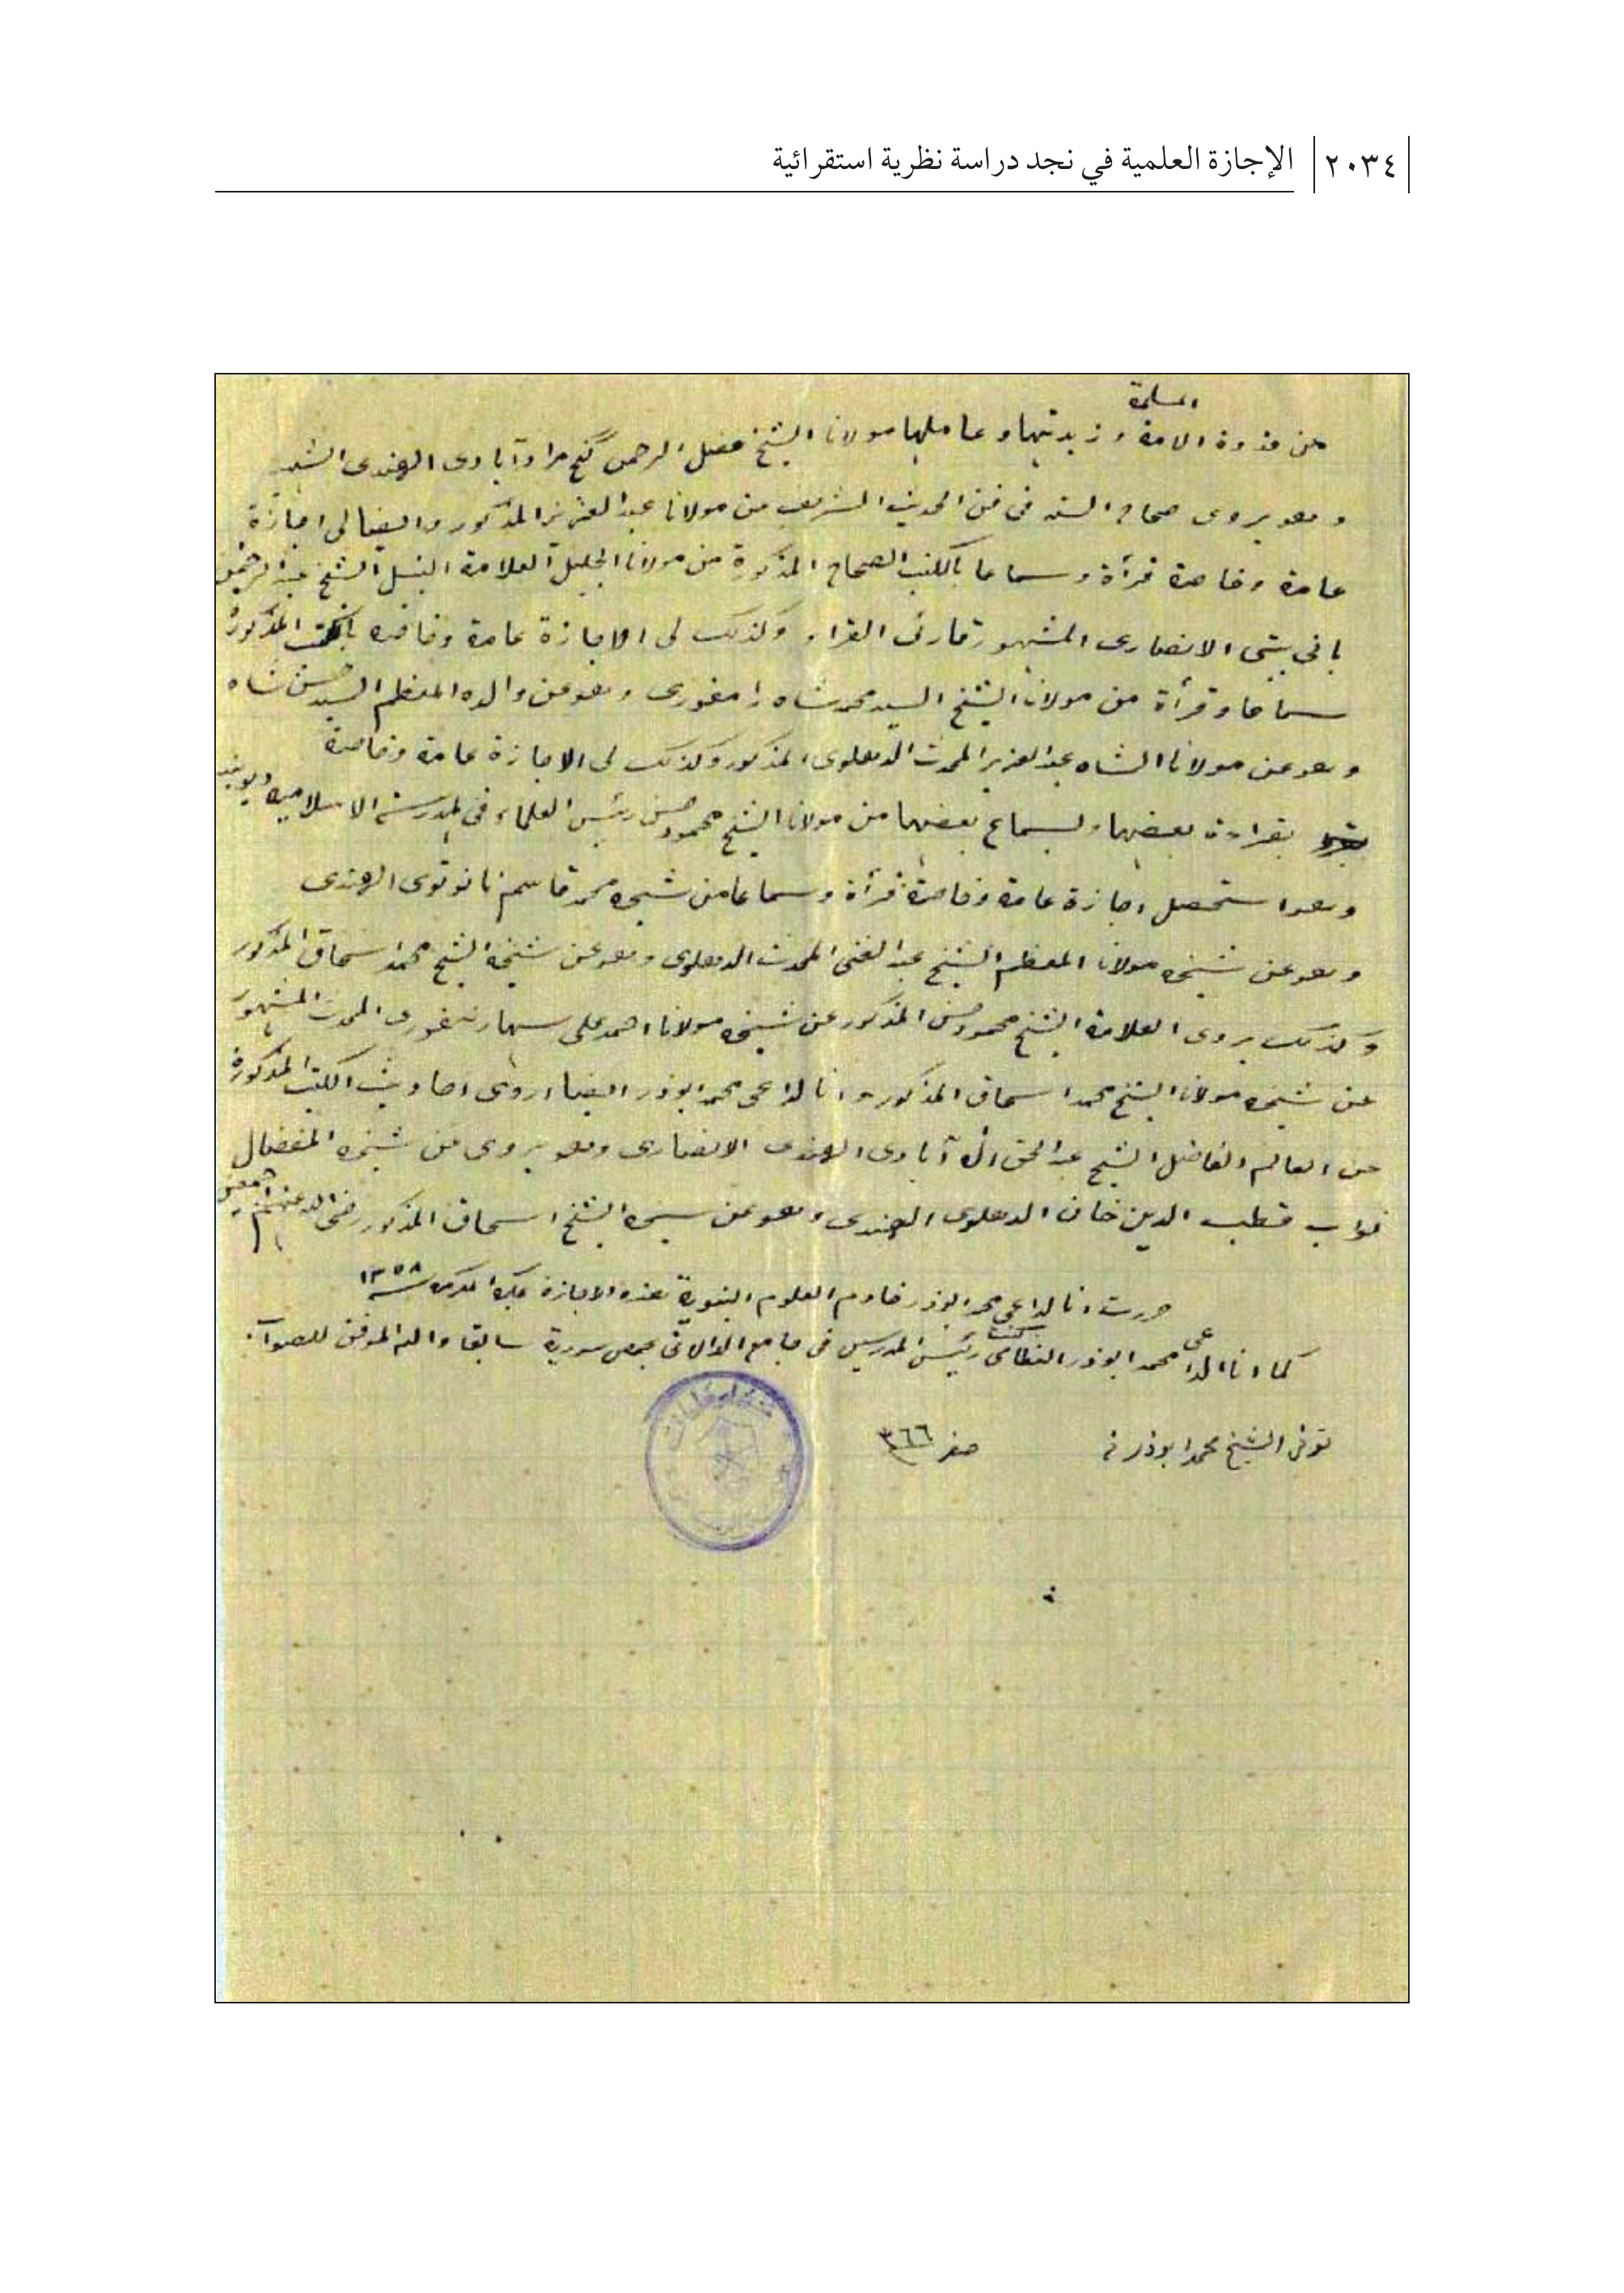 ٢٠٣٤ الإجازة العلمية في نجد دراسة نظرية استقرائية
المسلمة
من قدوة الامة و زبدتها و عاملها مولانا الشيخ فضل الرحمن گنج مرادآبادى الهندى
و هو يروى صحاح الستة فى فن الحديث الشريف من مولانا عبد العزيز المذكور وايضا لى اجازة
عامة وخاصة قرأة وسماعا بالكتب الصحاح المذكورة من مولانا الجليل العلامة الشيخ عبد الرحمن
بانى بتى الانصارى المشهور قارئ القراء وكذلك لى الاجازة عامة وخاصة المذكورة
سماعا وقرأة من مولانا الشيخ السيد محمد شاه رامفورى وهو عن والده المعظم السيد حسن شاه
وهو عن مولانا الشاه عبد العزيز المحدث الدهلوى المذكور وكذلك لى الاجازة عامة وخاصة
بقراءة بعضها وبسماع بعضها من مولانا الشيخ محمود حسن رئيس العلماء فى المدرسة الاسلامية ديوبند
وهو استحصل اجازة عامة وخاصة قرأة وسماعا من شيخه محمد قاسم نانوتوى الهندى
وهو عن شيخه مولانا المعظم الشيخ عبد الغنى المحدث الدهلوى وهو عن شيخه الشيخ محمد اسحاق المذكور
وكذلك يروى العلامة الشيخ محمود حسن المذكور عن شيخه مولانا احمد على سهارنفورى المحدث المشهور
عن شيخه مولانا الشيخ محمد اسحاق المذكور وانا الداعى محمد ابوذر ايضا اروى احاديث الكتب المذكورة
عن العالم الفاضل الشيخ عبد الحق اله آبادى الهندى الانصارى وهو يروى عن شيخه المفضال
نواب قطب الدين خان الدهلوى الهندى وهو عن شيخه الشيخ اسحاق المذكور رضى الله عنهم اجمعين
حررت انا الداعى محمد ابوذر خادم العلوم النبوية هذه الاجازة بمكة المكرمة سنة ١٣٥٨
كما انا الداعى محمد ابوذر النظامى كنت رئيس المدرسين فى جامع الدالاتى بحمص سورية سابقا والله الموفق للصواب
توفى الشيخ محمد ابوذر فى صفر ٣٦٦